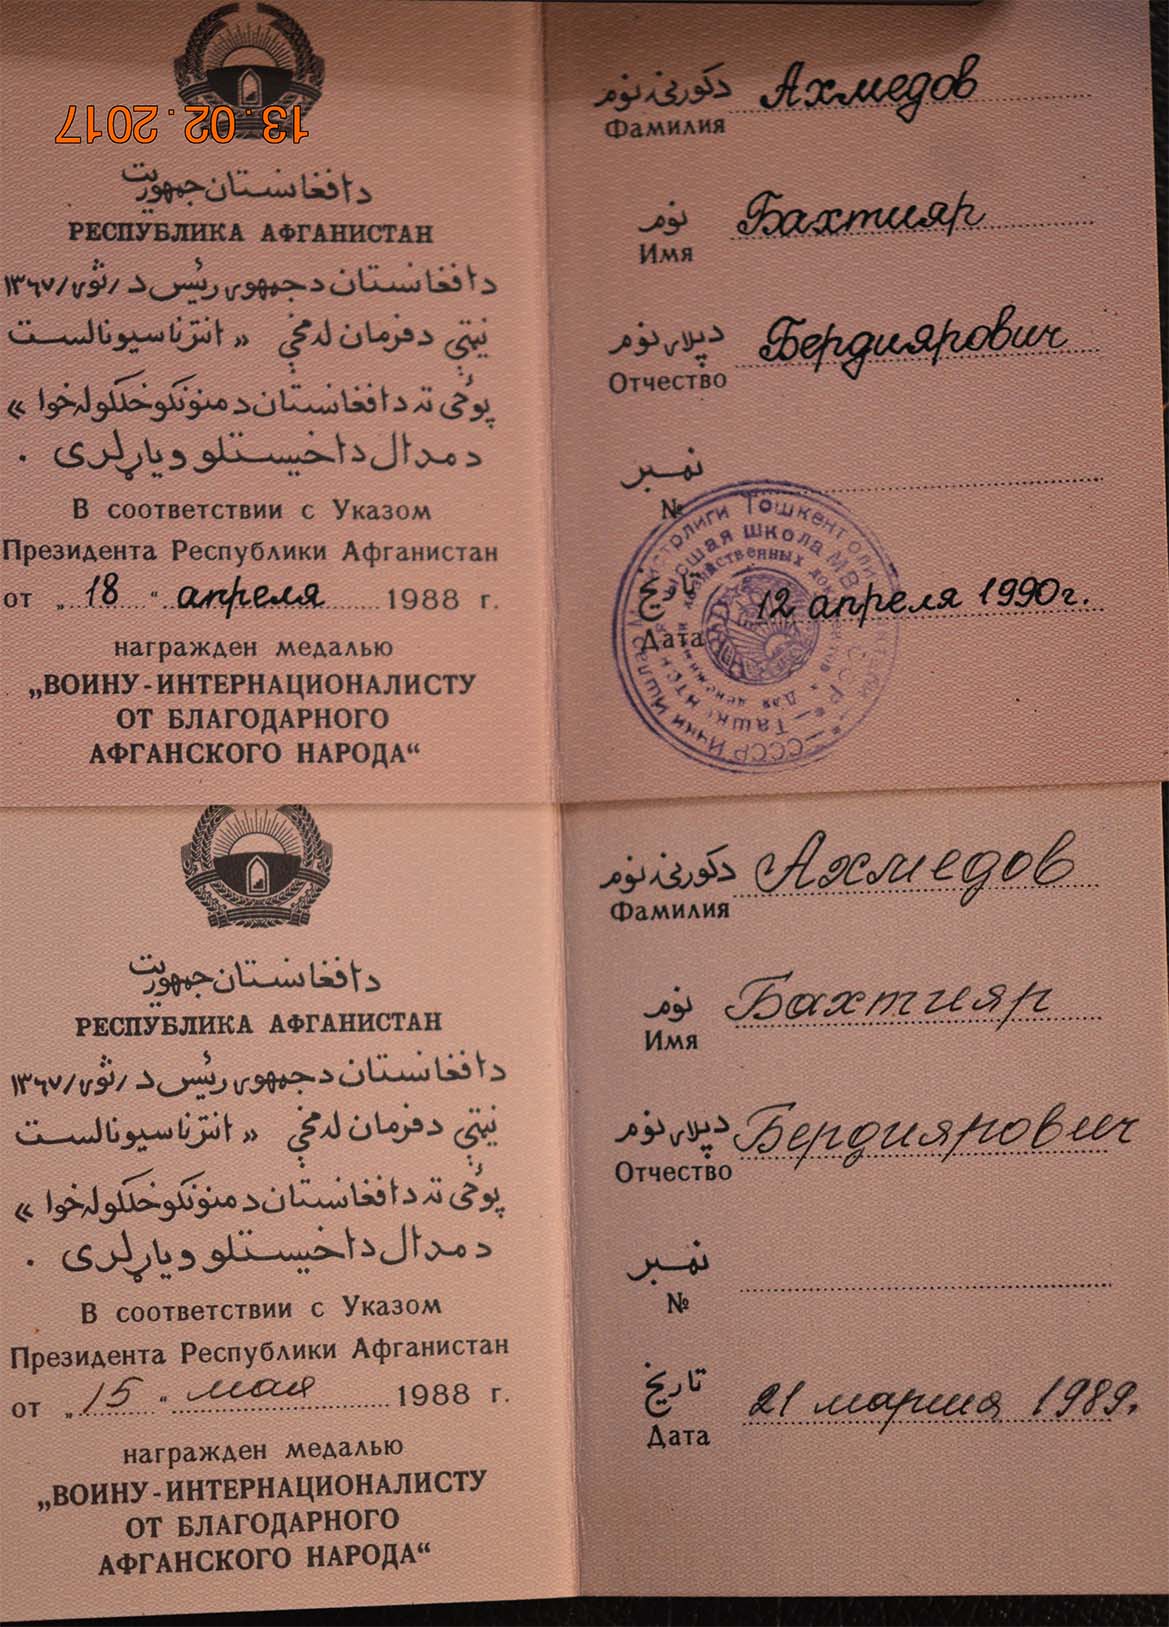 13.02.2017
دافغانستان جمهوریت
РЕСПУБЛИКА АФГАНИСТАН
دافغانستان دجمهوری رئیس د /ثور/ ١٣٦٧
نیټې دفرمان له مخې « انترناسیونالست
پوځی ته دافغانستان دمنونکو خلکو له خوا »
دمدال داخیستلو ویاړ لری .
В соответствии с Указом
Президента Республики Афганистан
от „ 18 “ апреля 1988 г.
награжден медалью
„ВОИНУ-ИНТЕРНАЦИОНАЛИСТУ
ОТ БЛАГОДАРНОГО
АФГАНСКОГО НАРОДА“
دکورنۍ نوم Ахмедов
Фамилия
نوم Бахтияр
Имя
دپلار نوم Бердиярович
Отчество
نمبر
№
تاریخ 12 апреля 1990г.
Дата
СССР Ички ишлар Тошкент олий
Ташк высшая школа МВД СССР
Для денежных документов
دافغانستان جمهوریت
РЕСПУБЛИКА АФГАНИСТАН
دافغانستان دجمهوری رئیس د /ثور/ ١٣٦٧
نیټې دفرمان له مخې « انترناسیونالست
پوځی ته دافغانستان دمنونکو خلکو له خوا »
دمدال داخیستلو ویاړ لری .
В соответствии с Указом
Президента Республики Афганистан
от „ 15 “ мая 1988 г.
награжден медалью
„ВОИНУ-ИНТЕРНАЦИОНАЛИСТУ
ОТ БЛАГОДАРНОГО
АФГАНСКОГО НАРОДА“
دکورنۍ نوم Ахмедов
Фамилия
نوم Бахтияр
Имя
دپلار نوم Бердиярович
Отчество
نمبر
№
تاریخ 21 марта 1989.
Дата